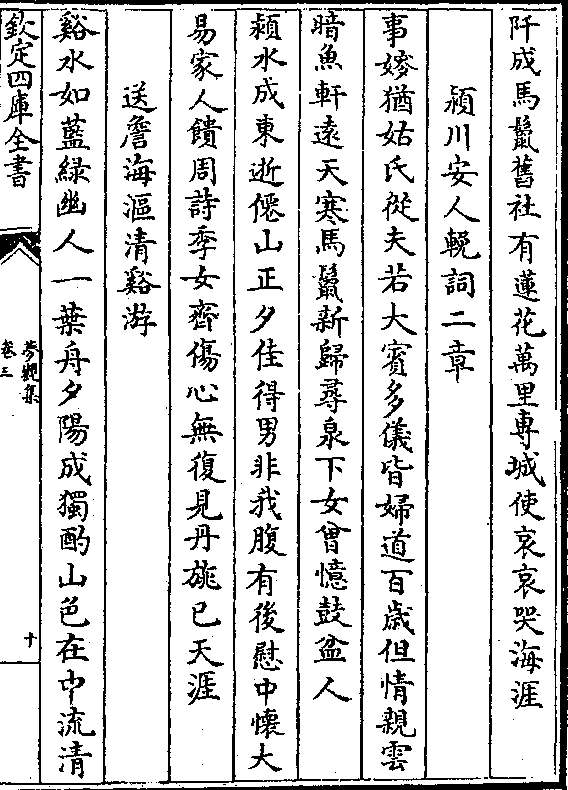 阡成馬鬛舊社有蓮花萬里専城使哀哀哭海涯
潁川安人輓詞二章
事嫜猶姑氏從夫若大賓多儀皆婦道百歳但情親雲
暗魚軒逺天寒馬鬛新歸尋泉下女曾憶鼓盆人
潁水成東逝僊山正夕佳得男非我腹有後慰中懐大
易家人饋周詩季女齊傷心無復見丹旐已天涯
送詹海漚清谿游
谿水如藍緑幽人一葉舟夕陽成獨酌山色在中流清
欽定四庫全書
夢觀集
卷三
十